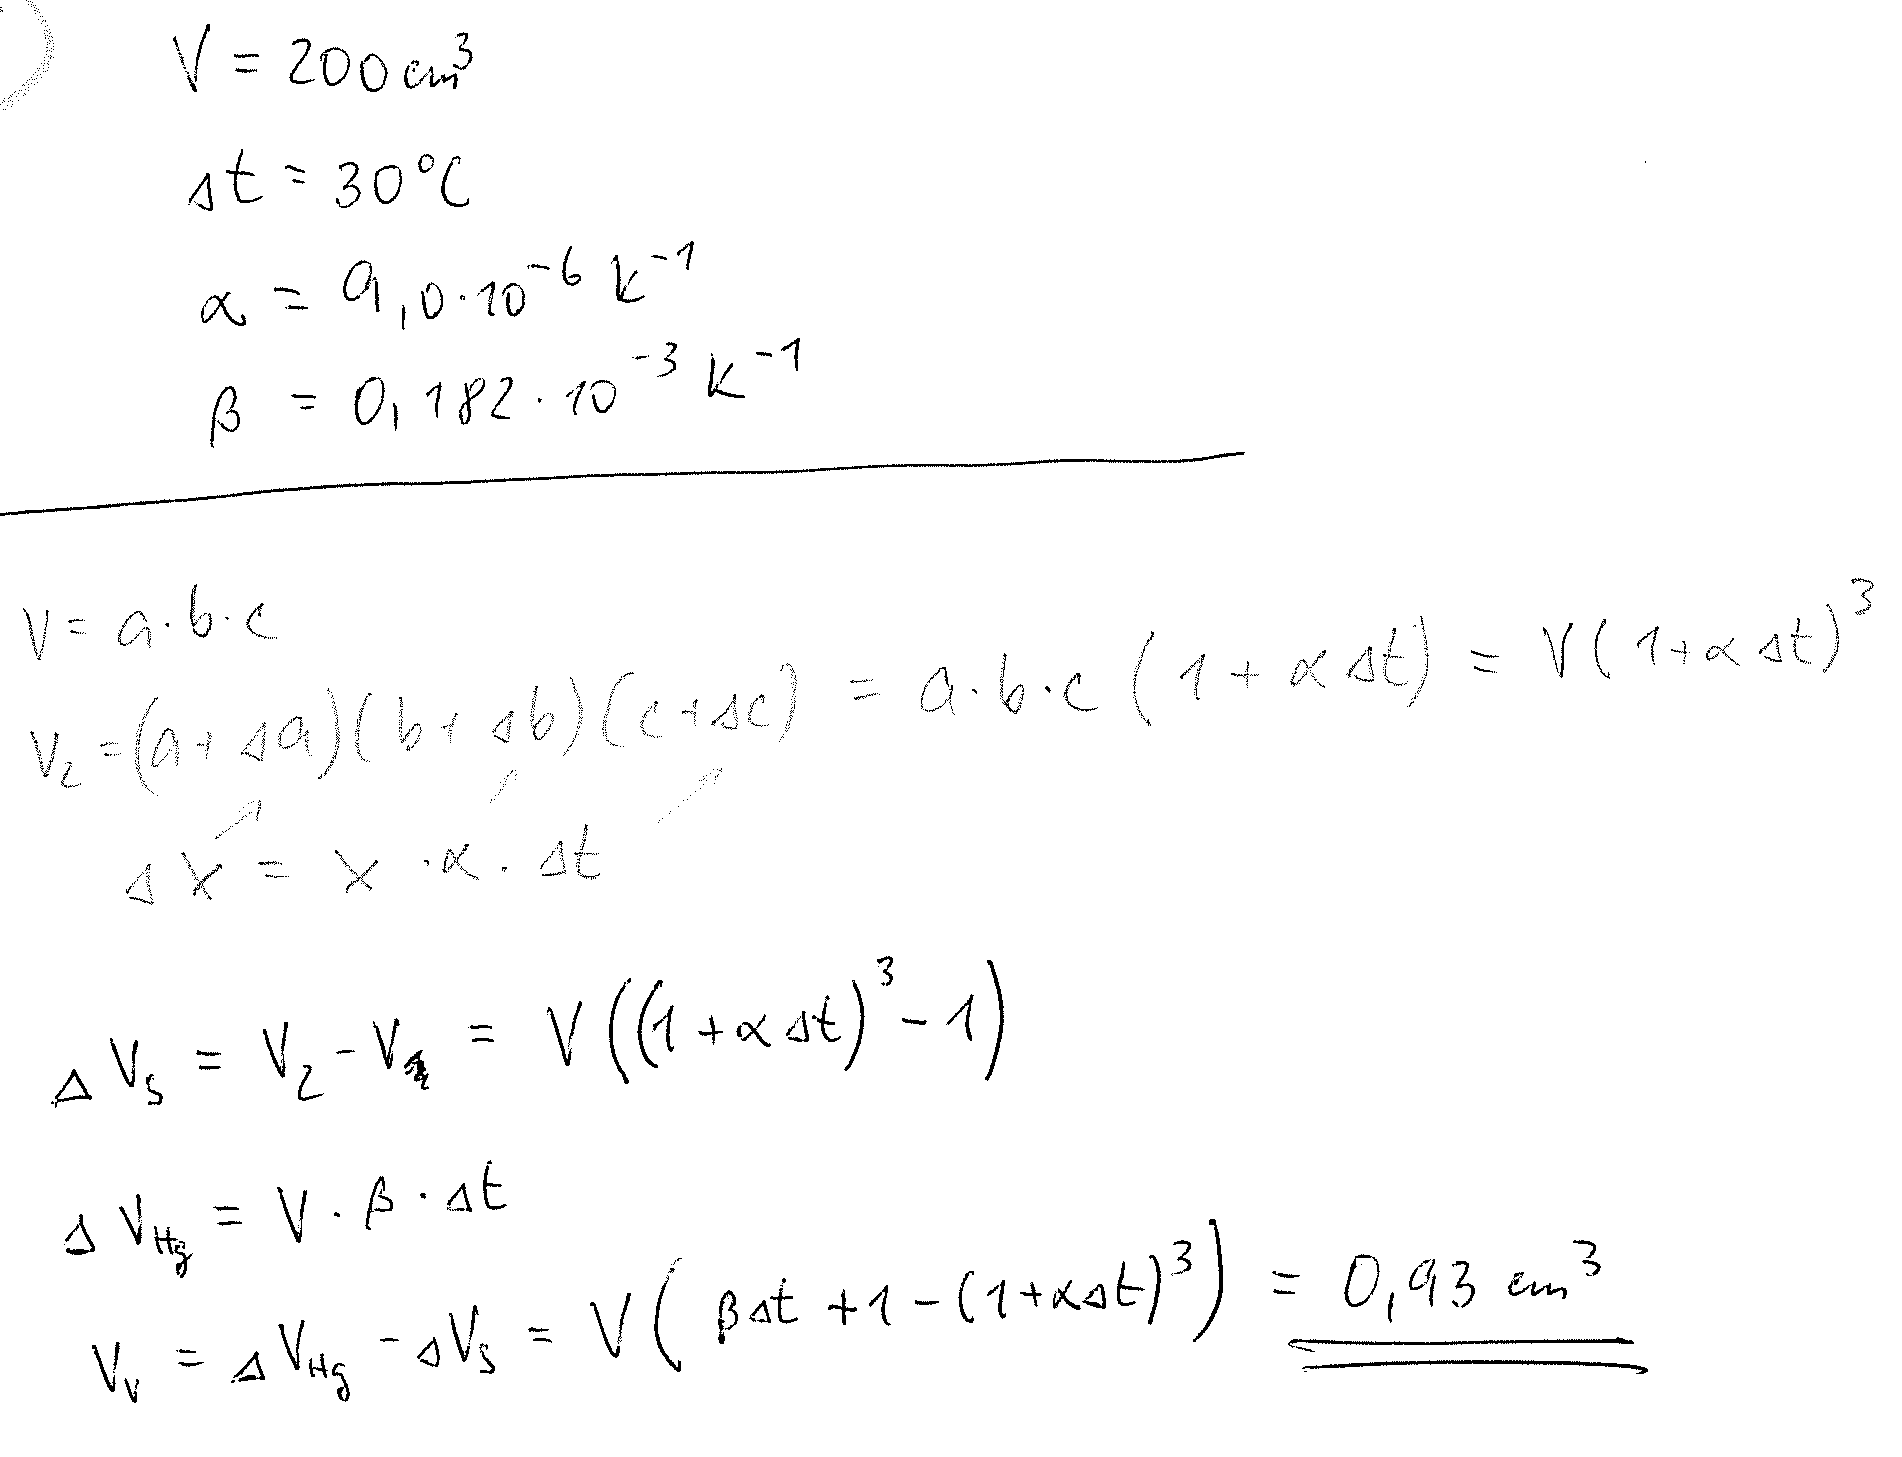 V = 200 cm³
Δt = 30°C
α = 9,0·10⁻⁶ K⁻¹
β = 0,182·10⁻³ K⁻¹
V = a·b·c
V₂ = (a+Δa)(b+Δb)(c+Δc) = a·b·c (1+αΔt) = V(1+αΔt)³
Δx = x·α·Δt
ΔVs = V₂ - V = V((1+αΔt)³-1)
ΔVHg = V·β·Δt
Vv = ΔVHg - ΔVs = V(βΔt+1-(1+αΔt)³) = 0,93 cm³